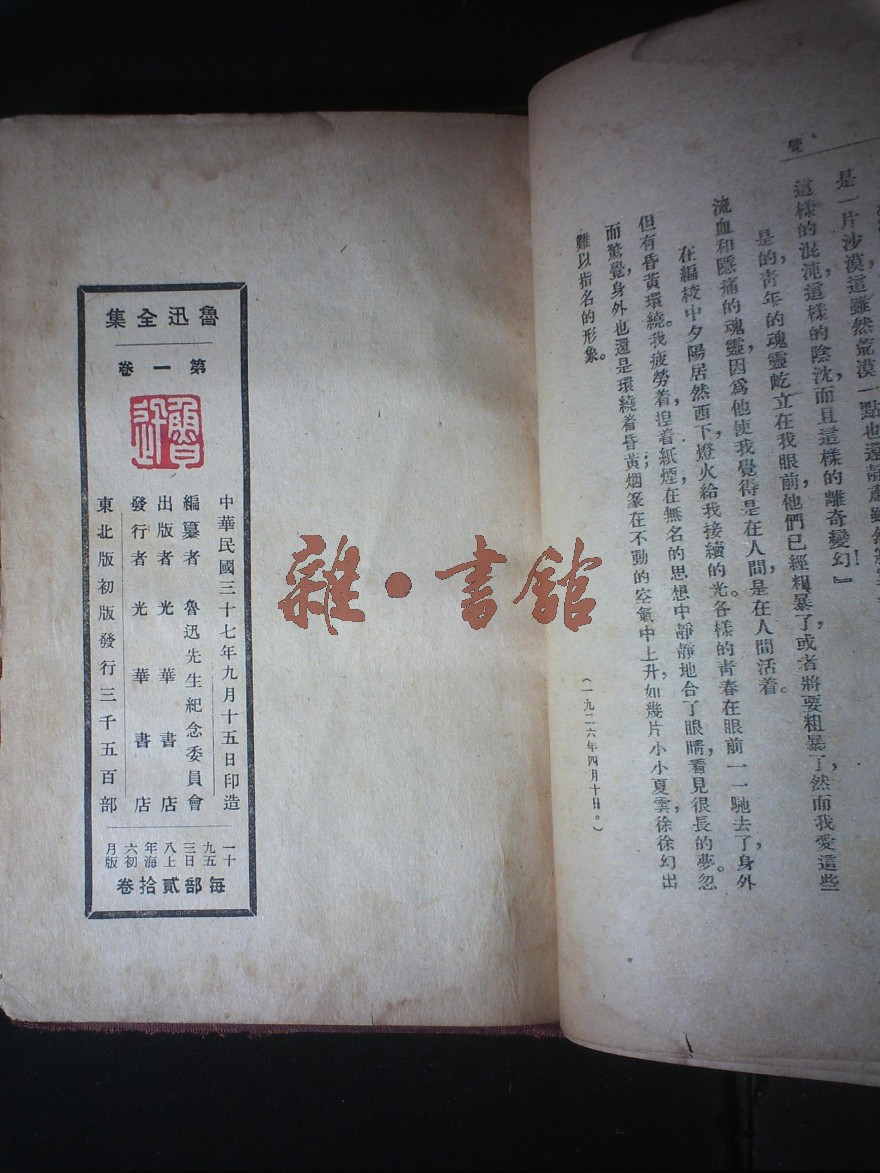 覺
是一片沙漠這雖然荒漠一點也還靜肅雖然
這樣的混沌，這樣的陰沈，而且這樣的離奇變幻！』
是的，青年的魂靈屹立在我眼前，他們已經粗暴了，或者將要粗暴了，然而我愛這些
流血和隱痛的魂靈，因爲他使我覺得是在人間，是在人間活着。
在編校中夕陽居然西下，燈火給我接續的光。各樣的青春在眼前一一馳去了，身外
但有昏黃環繞。我疲勞着，捏着紙煙，在無名的思想中靜靜地合了眼睛，看見很長的夢。忽
而驚覺，身外也還是環繞着昏黃；烟篆在不動的空氣中上升，如幾片小小夏雲，徐徐幻出
難以指名的形象。
（一九二六年四月十日。）
魯迅全集
第一卷
魯迅
中華民國三十七年九月十五日印造
編纂者 魯迅先生紀念委員會
出版者 光華書店
發行者 光華書店
東北版初版發行三千五百部
一九三八年六月
十五日上海初版
每部貳拾卷
雜·書館